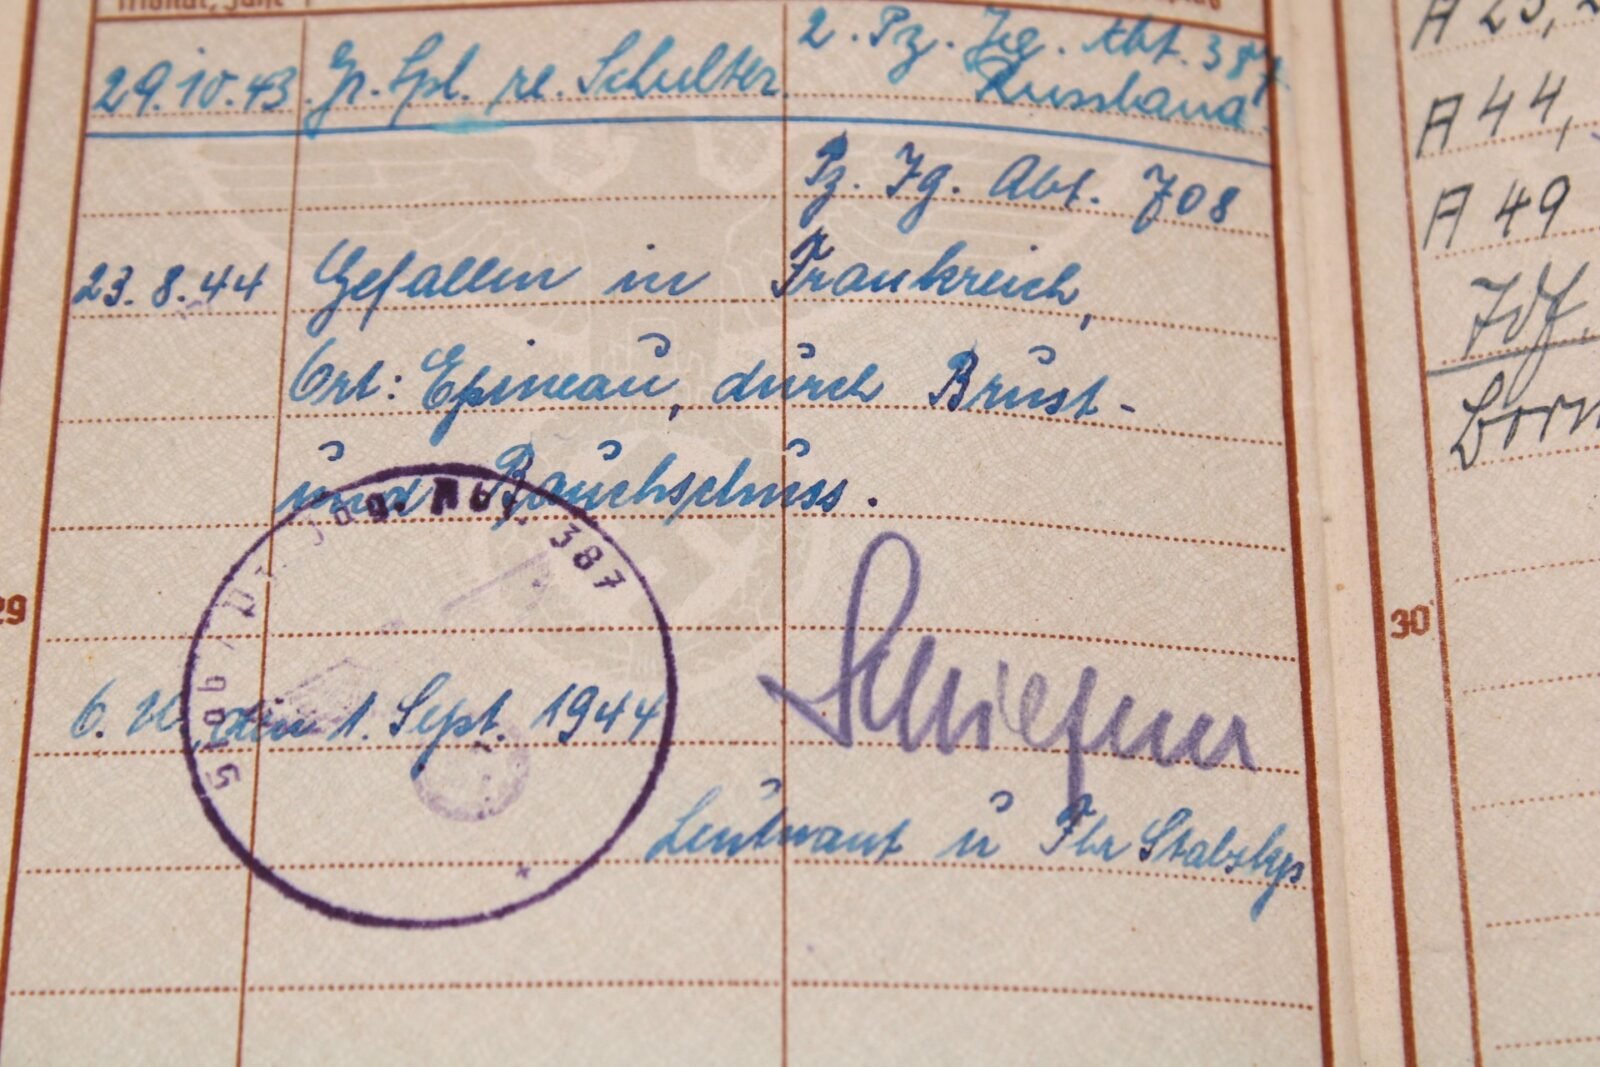 Monat, Jahr
29.10.43 Gr. Spl. re. Schulter. 2. Pz. Jg. Abt. 387
Russland
Pz. Jg. Abt. 708
23.8.44 Gefallen in Frankreich,
Ort: Epineau, durch Brust-
und Bauchschuss.
Stab / Pz. Jäg. Abt. 387
O. U., den 1. Sept. 1944
Leutnant u
29
A 44,
A 49
30